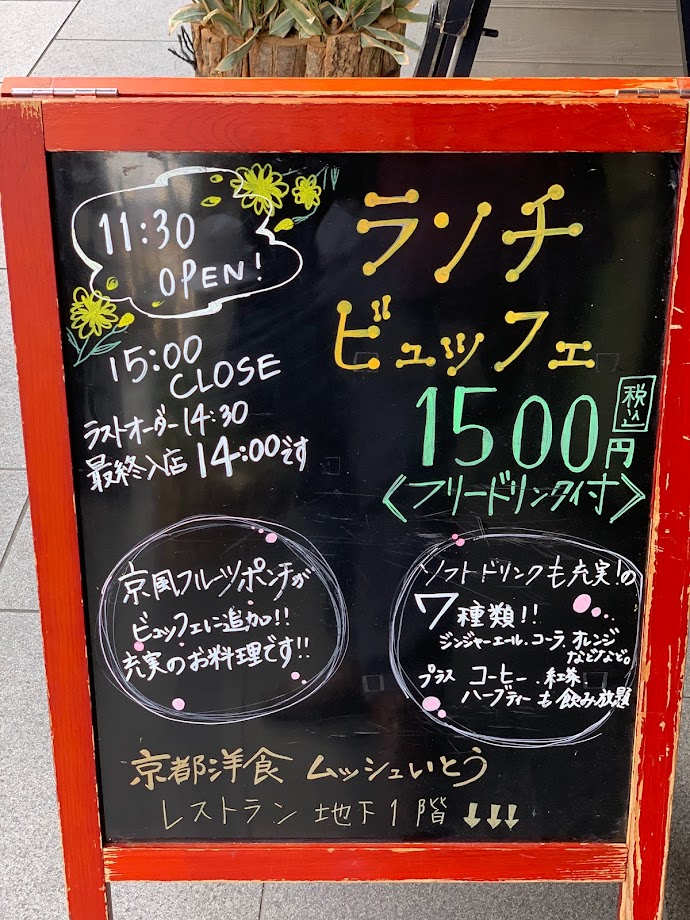 11:30
OPEN!
15:00
CLOSE
ラストオーダー14:30
最終入店14:00です
ランチ
ビュッフェ
1500円
税込
〈フリードリンク付〉
京風フルーツポンチが
ビュッフェに追加!!
充実のお料理です!!
ソフトドリンクも充実!の
7種類!!
ジンジャーエール.コーラ.オレンジ
などなど。
プラス コーヒー.紅茶
ハーブティーも飲み放題
京都洋食 ムッシュいとう
レストラン 地下1階 ↓↓↓